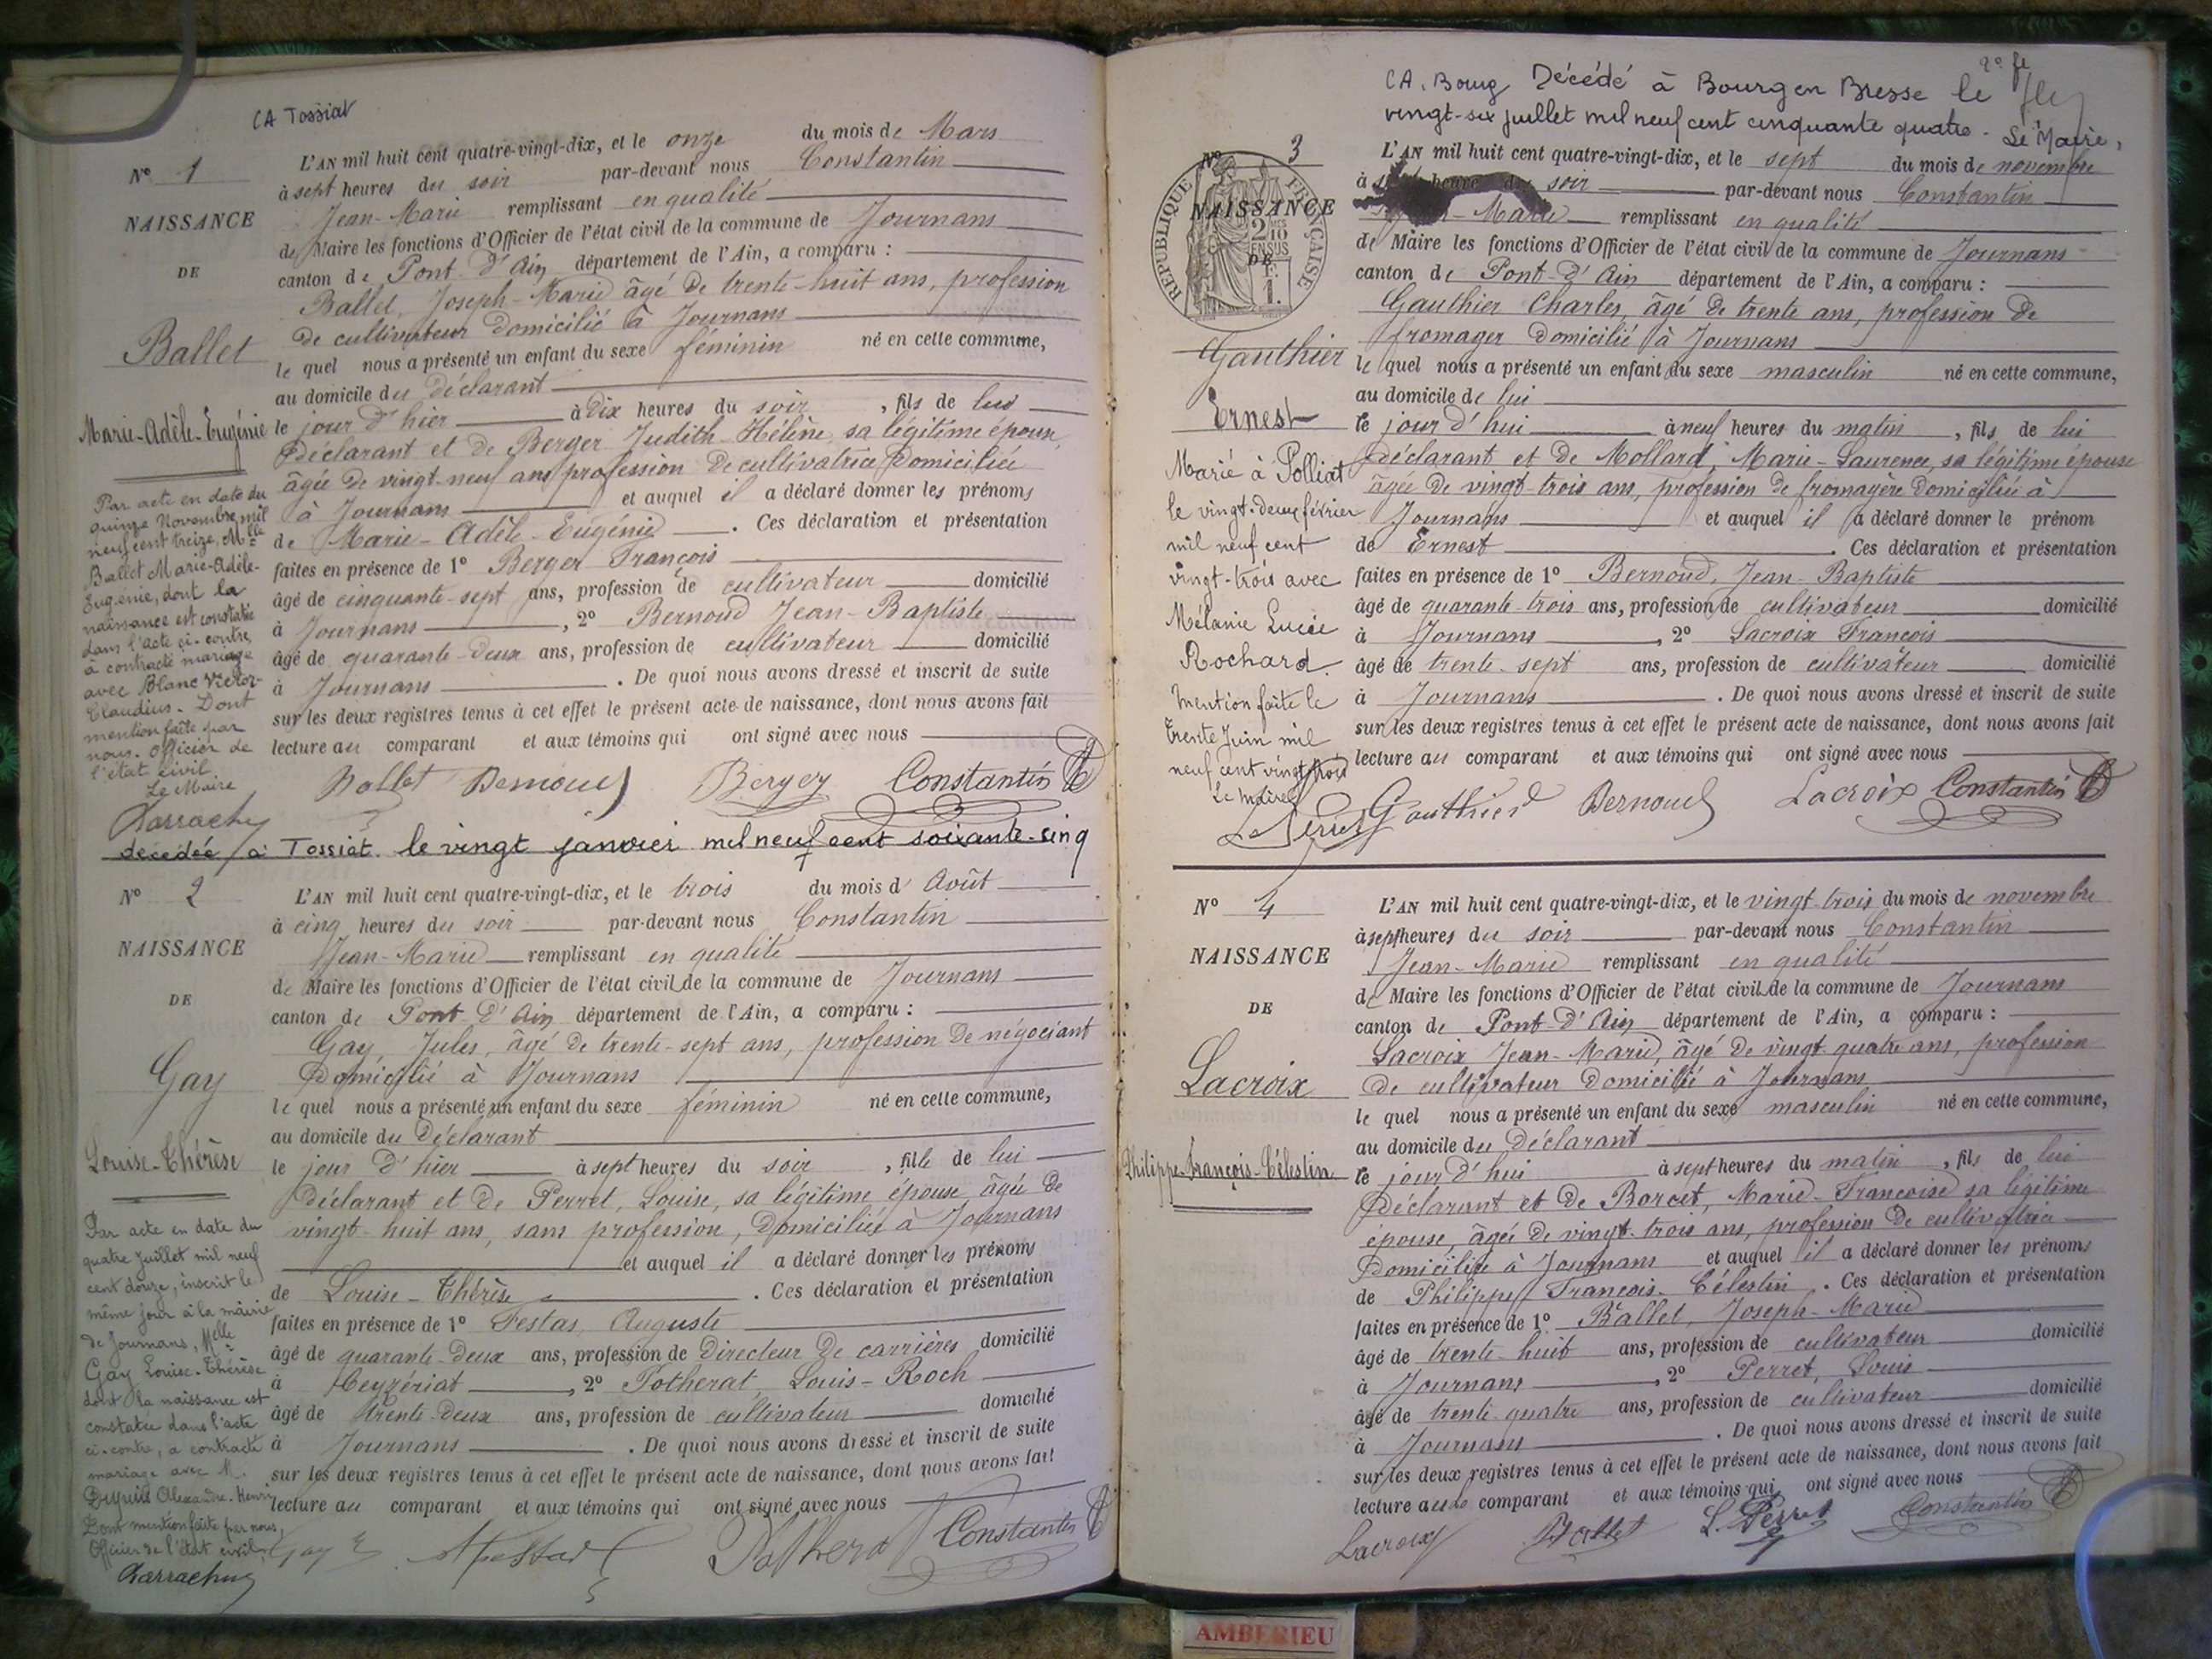 CA Tossiat
N° 1
NAISSANCE
DE
Ballet
Marie-Adèle-Eugénie
Par acte en date du
quinze Novembre mil
neuf cent treize, Mlle
Ballet Marie-Adèle-
Eugénie, dont la
naissance est constatée
dans l'acte ci-contre,
à contracté mariage
avec Blanc Victor-
Claudius. Dont
mention faite par
nous. Officier de
l'état civil
Le Maire
L'AN mil huit cent quatre-vingt-dix, et le onze du mois de Mars
à sept heures du soir par-devant nous Constantin
Jean-Marie remplissant en qualité
de Maire les fonctions d'Officier de l'état civil de la commune de Journans
canton de Pont-d'Ain département de l'Ain, a comparu :
Ballet, Joseph-Marie âgé de trente-huit ans, profession
de cultivateur domicilié à Journans
le quel nous a présenté un enfant du sexe féminin né en cette commune,
au domicile du déclarant
le jour d'hier à dix heures du soir, fils de lui
déclarant et de Berger Judith-Hélène, sa légitime épouse,
âgée de vingt-neuf ans profession de cultivatrice domiciliée
à Journans et auquel il a déclaré donner les prénoms
de Marie-Adèle-Eugénie. Ces déclaration et présentation
faites en présence de 1° Berger François
âgé de cinquante-sept ans, profession de cultivateur domicilié
à Journans, 2° Bernoud Jean-Baptiste
âgé de quarante-deux ans, profession de cultivateur domicilié
à Journans. De quoi nous avons dressé et inscrit de suite
sur les deux registres tenus à cet effet le présent acte de naissance, dont nous avons fait
lecture au comparant et aux témoins qui ont signé avec nous
Ballet Bernoud Berger Constantin
décédée à Tossiat le vingt janvier mil neuf cent soixante-cinq
N° 2
NAISSANCE
DE
Gay
Louise-Thérèse
Par acte en date du
quatre Juillet mil neuf
cent douze, inscrit le
même jour à la mairie
de Journans, Melle
Gay Louise-Thérèse
dont la naissance est
constatée dans l'acte
ci-contre, a contracté
mariage avec M.
Alexandre-Henri
Dont mention faite par nous,
Officier de l'état civil,
L'AN mil huit cent quatre-vingt-dix, et le trois du mois d'Août
à cinq heures du soir par-devant nous Constantin
Jean-Marie remplissant en qualité
de Maire les fonctions d'Officier de l'état civil de la commune de Journans
canton de Pont-d'Ain département de l'Ain, a comparu :
Gay, Jules, âgé de trente-sept ans, profession de négociant
domicilié à Journans
le quel nous a présenté un enfant du sexe féminin né en cette commune,
au domicile du déclarant
le jour d'hier à sept heures du soir, fille de lui
déclarant et de Perret, Louise, sa légitime épouse, âgée de
vingt-huit ans, sans profession, domiciliée à Journans
et auquel il a déclaré donner les prénoms
de Louise-Thérèse. Ces déclaration et présentation
faites en présence de 1° Festas, Auguste
âgé de quarante-deux ans, profession de directeur de carrières domicilié
à Ceyzériat, 2° Potherat Louis-Roch
âgé de trente-deux ans, profession de cultivateur domicilié
à Journans. De quoi nous avons dressé et inscrit de suite
sur les deux registres tenus à cet effet le présent acte de naissance, dont nous avons fait
lecture au comparant et aux témoins qui ont signé avec nous
Gay Potherat Constantin
CA. Bourg Décédé à Bourg en Bresse le
vingt-six juillet mil neuf cent cinquante quatre - Le Maire,
N° 3
RÉPUBLIQUE FRANÇAISE
NAISSANCE
2 10
EN SUS
DE
1.
Gauthier
Ernest
Marié à Polliat
le vingt-deux février
mil neuf cent
vingt-trois avec
Mélanie Lucie
Rochard.
Mention faite le
trente Juin mil
neuf cent vingt trois
Le Maire
L'AN mil huit cent quatre-vingt-dix, et le sept du mois de novembre
à heures du soir par-devant nous Constantin
Jean-Marie remplissant en qualité
de Maire les fonctions d'Officier de l'état civil de la commune de Journans
canton de Pont-d'Ain département de l'Ain, a comparu :
Gauthier Charles, âgé de trente ans, profession de
fromager domicilié à Journans
le quel nous a présenté un enfant du sexe masculin né en cette commune,
au domicile de lui
le jour d'hui à neuf heures du matin, fils de lui
déclarant et de Mollard, Marie-Laurence, sa légitime épouse
âgée de vingt-trois ans, profession de fromagère domiciliée à
Journans et auquel il a déclaré donner le prénom
de Ernest. Ces déclaration et présentation
faites en présence de 1° Bernoud, Jean-Baptiste
âgé de quarante-trois ans, profession de cultivateur domicilié
à Journans, 2° Lacroix François
âgé de trente-sept ans, profession de cultivateur domicilié
à Journans. De quoi nous avons dressé et inscrit de suite
sur les deux registres tenus à cet effet le présent acte de naissance, dont nous avons fait
lecture au comparant et aux témoins qui ont signé avec nous
Gauthier Bernoud Lacroix Constantin
N° 4
NAISSANCE
DE
Lacroix
Philippe-François-Célestin
L'AN mil huit cent quatre-vingt-dix, et le vingt-trois du mois de novembre
à sept heures du soir par-devant nous Constantin
Jean-Marie remplissant en qualité
de Maire les fonctions d'Officier de l'état civil de la commune de Journans
canton de Pont-d'Ain département de l'Ain, a comparu :
Lacroix Jean-Marie, âgé de vingt-quatre ans, profession
de cultivateur domicilié à Journans
le quel nous a présenté un enfant du sexe masculin né en cette commune,
au domicile du déclarant
le jour d'hui à sept heures du matin, fils de lui
déclarant et de Borcet, Marie-Françoise sa légitime
épouse, âgée de vingt-trois ans, profession de cultivatrice
domiciliée à Journans et auquel il a déclaré donner les prénoms
de Philippe François-Célestin. Ces déclaration et présentation
faites en présence de 1° Ballet, Joseph-Marie
âgé de trente-huit ans, profession de cultivateur domicilié
à Journans, 2° Perret, Louis
âgé de trente-quatre ans, profession de cultivateur domicilié
à Journans. De quoi nous avons dressé et inscrit de suite
sur les deux registres tenus à cet effet le présent acte de naissance, dont nous avons fait
lecture au comparant et aux témoins qui ont signé avec nous
Lacroix Ballet L. Perret Constantin
AMBERIEU